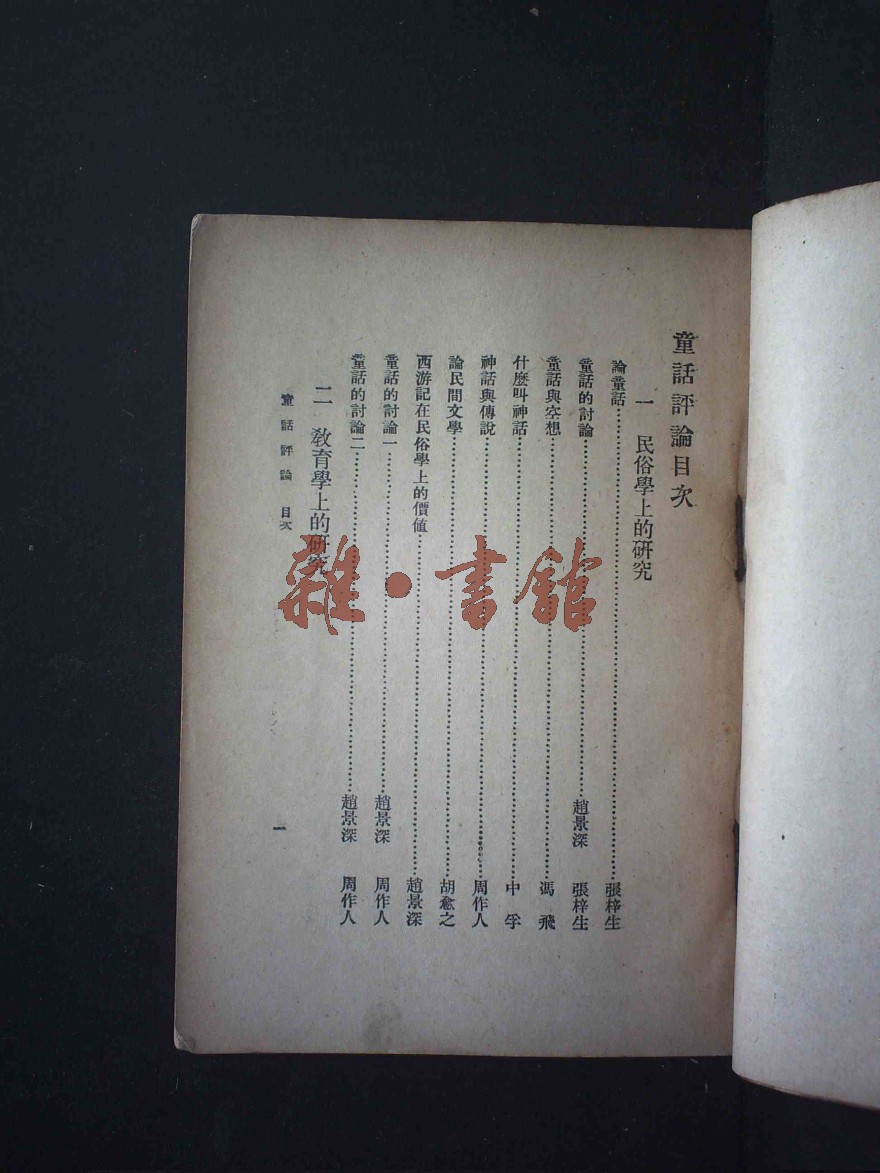 童話評論目次
一 民俗學上的研究
論童話……………張梓生
童話的討論……………趙景深 張梓生
童話與空想……………馮飛
什麼叫神話……………中孚
神話與傳說……………周作人
論民間文學……………胡愈之
西游記在民俗學上的價值……………趙景深
童話的討論一……………趙景深 周作人
童話的討論二……………趙景深 周作人
二 教育學上的研究
童話評論 目次
一
雜·書館